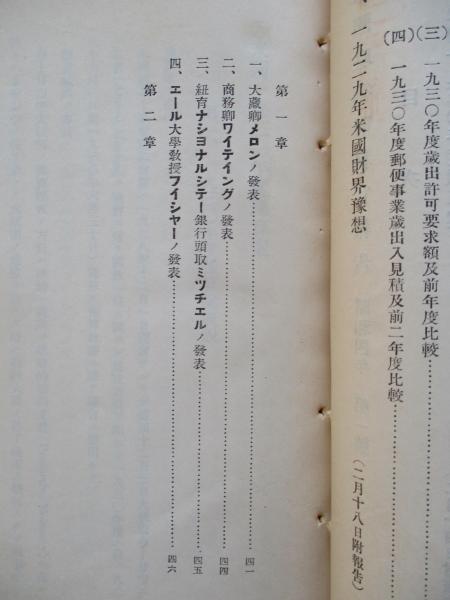 (三) 一九三〇年度歳出許可要求額及前年度比較………
(四) 一九三〇年度郵便事業歳出入見積及前二年度比較………
一九二九年米國財界豫想 (二月十八日附報告)
第一章
一、大藏卿メロンノ發表………四一
二、商務卿ワイテイングノ發表………四四
三、紐育ナシヨナルシテー銀行頭取ミツチエルノ發表………四五
四、エール大學教授フイシヤーノ發表………四六
第二章